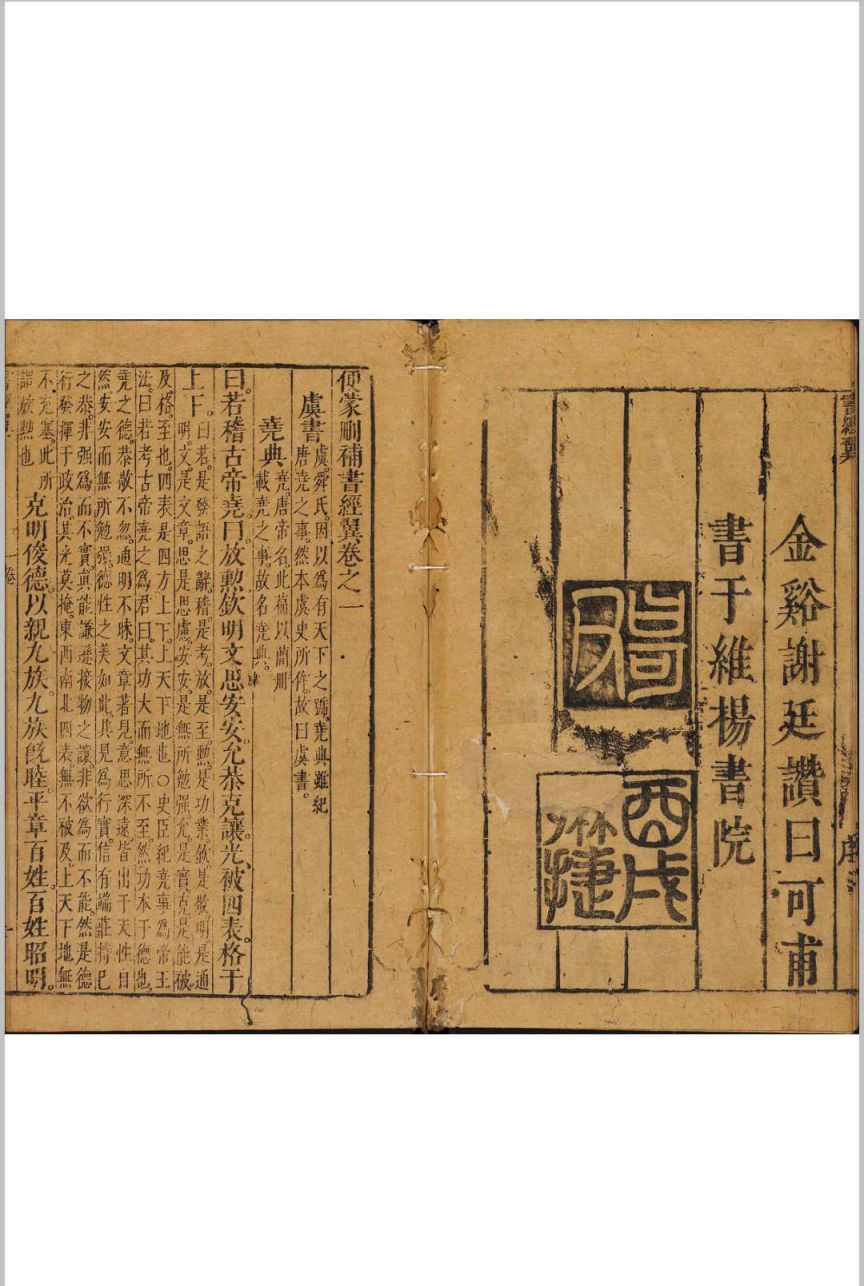 書經翼
金谿謝廷讚曰可甫
書于維揚書院
曰可
酉戌
便蒙刪補書經翼卷之一
虞書 虞舜氏因以爲有天下之號堯典雖紀
唐堯之事然本虞史所作故曰虞書
堯典 堯唐帝名此篇以簡冊
載堯之事故名堯典
曰若稽古帝堯曰放勲欽明文思安安允恭克讓光被四表格于
上下 曰若是發語之辭稽是考放是至勲是功業欽是敬明是通
明文是文章思是思慮安安是無所勉强允是實克是能被
及格至也四表是四方上下上天下地也○史臣紀堯事爲帝王
法曰若考古帝堯之爲君曰其功大而無所不至然功本于德也
堯之德恭敬不忽通明不昧文章著見意思深遠皆出于天性自
然安安而無所勉强德性之美如此其見爲行實信有端莊持己
之恭非强爲而不實真能謙遜接物之讓非欲爲而不能然是德
行發揮于政治其光莫掩東西南北四表無不被及上天下地無
不充塞此所
謂放勲也 克明俊德以親九族九族旣睦平章百姓百姓昭明